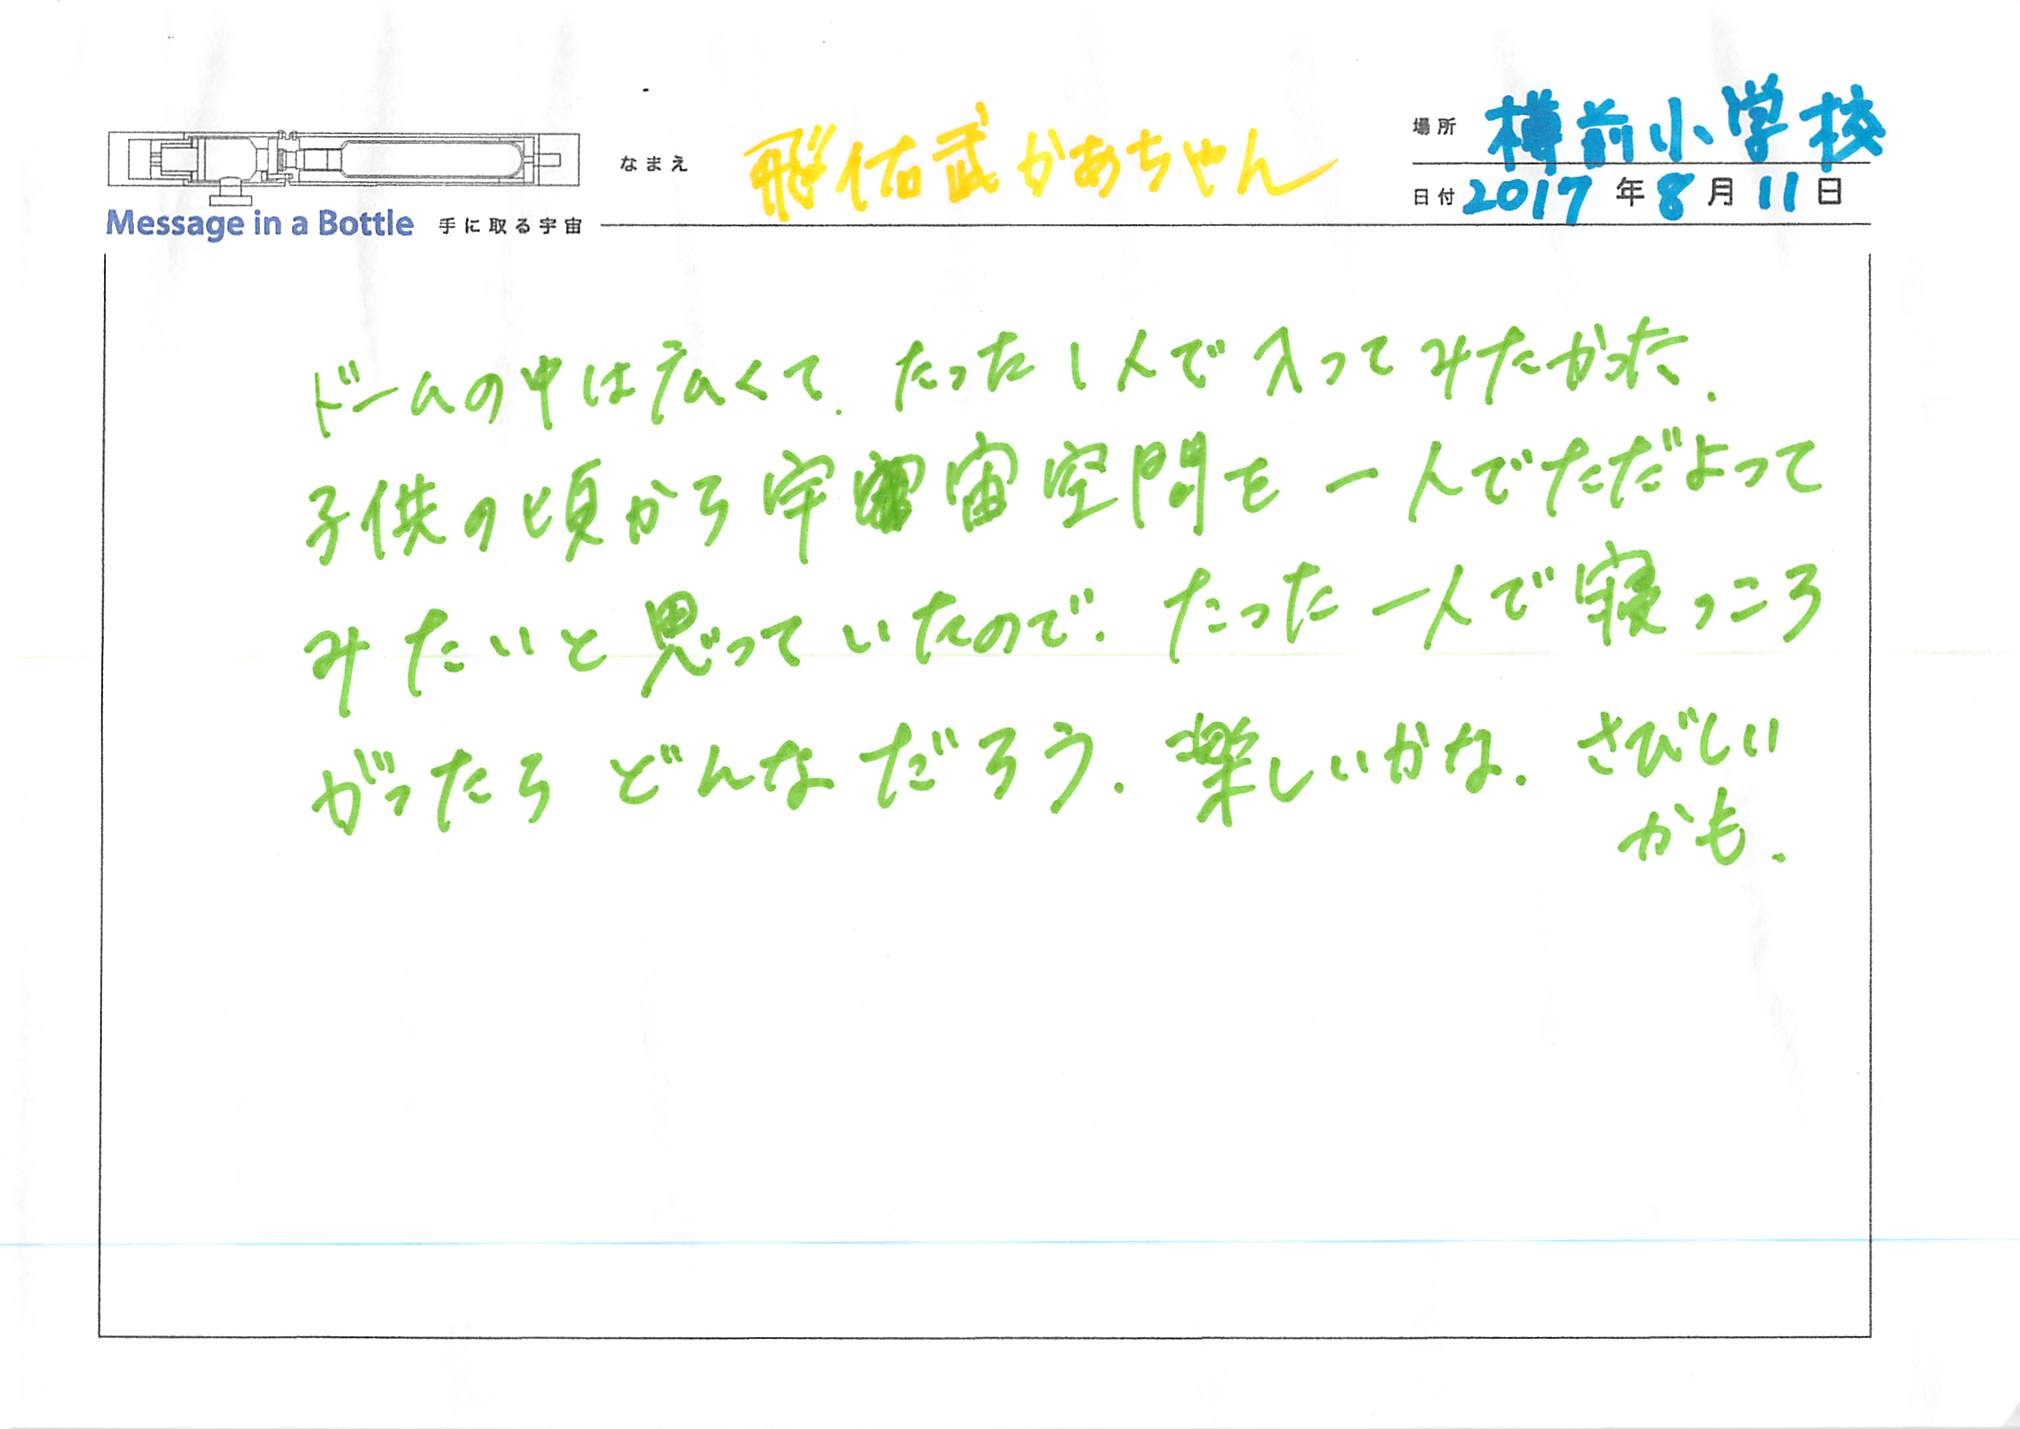 Message in a Bottle 手に取る宇宙
なまえ 飛佑武かあちゃん
場所 樽前小学校
日付 2017年8月11日
ドームの中は広くて、たった1人で入ってみたかった。
子供の頃から宇宙空間を一人でただよって
みたいと思っていたので、たった一人で寝っころ
がったらどんなだろう。楽しいかな。さびしい
かも。